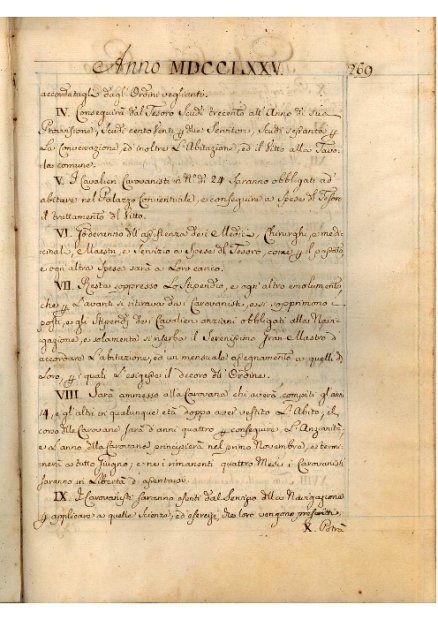 Anno MDCCLXXV. 269
accordatagli dagl'Ordini veglianti.
IV. Conseguirà dal Tesoro Scudi trecento all'Anno di sua
Provisione, Scudi cento venti p due Servitori, Scudi sessanta p
La Conversazione, ed inoltre L'Abitazione, ed il Vitto alla Tavo-
la comune.
V. I Cavalieri Carovanisti in N.º di 24 saranno obbligati ad
abitare nel Palazzo Conventuale, e conseguire a Spese del Tesoro
il trattamento del Vitto.
VI. Goderanno dell'assistenza dei Medici, Chirurghi, e medi-
cinali, Maestri, e Servizio a Spese del Tesoro, come p il passato
e ogni altra Spesa sarà a Loro carico.
VII. Resta soppresso Lo Stipendio, e ogn'altro emolumento,
che p L'avanti si ritirava dai Carovanisti, e si sopprimono i
posti, e gli Stipendj dei Cavalieri anziani obbligati alla Navi-
gazione, e solamente si riserba il Serenissimo Gran-Maestro d'
accordare L'abitazione, ed un mensuale assegnamento a quelli di
Loro, p i quali L'esigesse il decoro dell'Ordine.
VIII. Sarà ammesso alla Carovana chi averà compiti gl'anni
14, e gl'altri in qualunque età doppo aver vestito L'Abito, el
corso delle Carovane sarà d'anni quattro p conseguire L'Anzianità,
e L'anno della Carovana principierà nel primo Novembre, e termi-
nerà a tutto Giugno, e nei rimanenti quattro Mesi i Carovanisti
saranno in Libertà d'assentarsi.
IX. I Carovanisti saranno esenti dal Servizio della Navigazione
p applicare a quelle Scienze, ed esercizj, che loro vengono prescritti.
X. Potrà